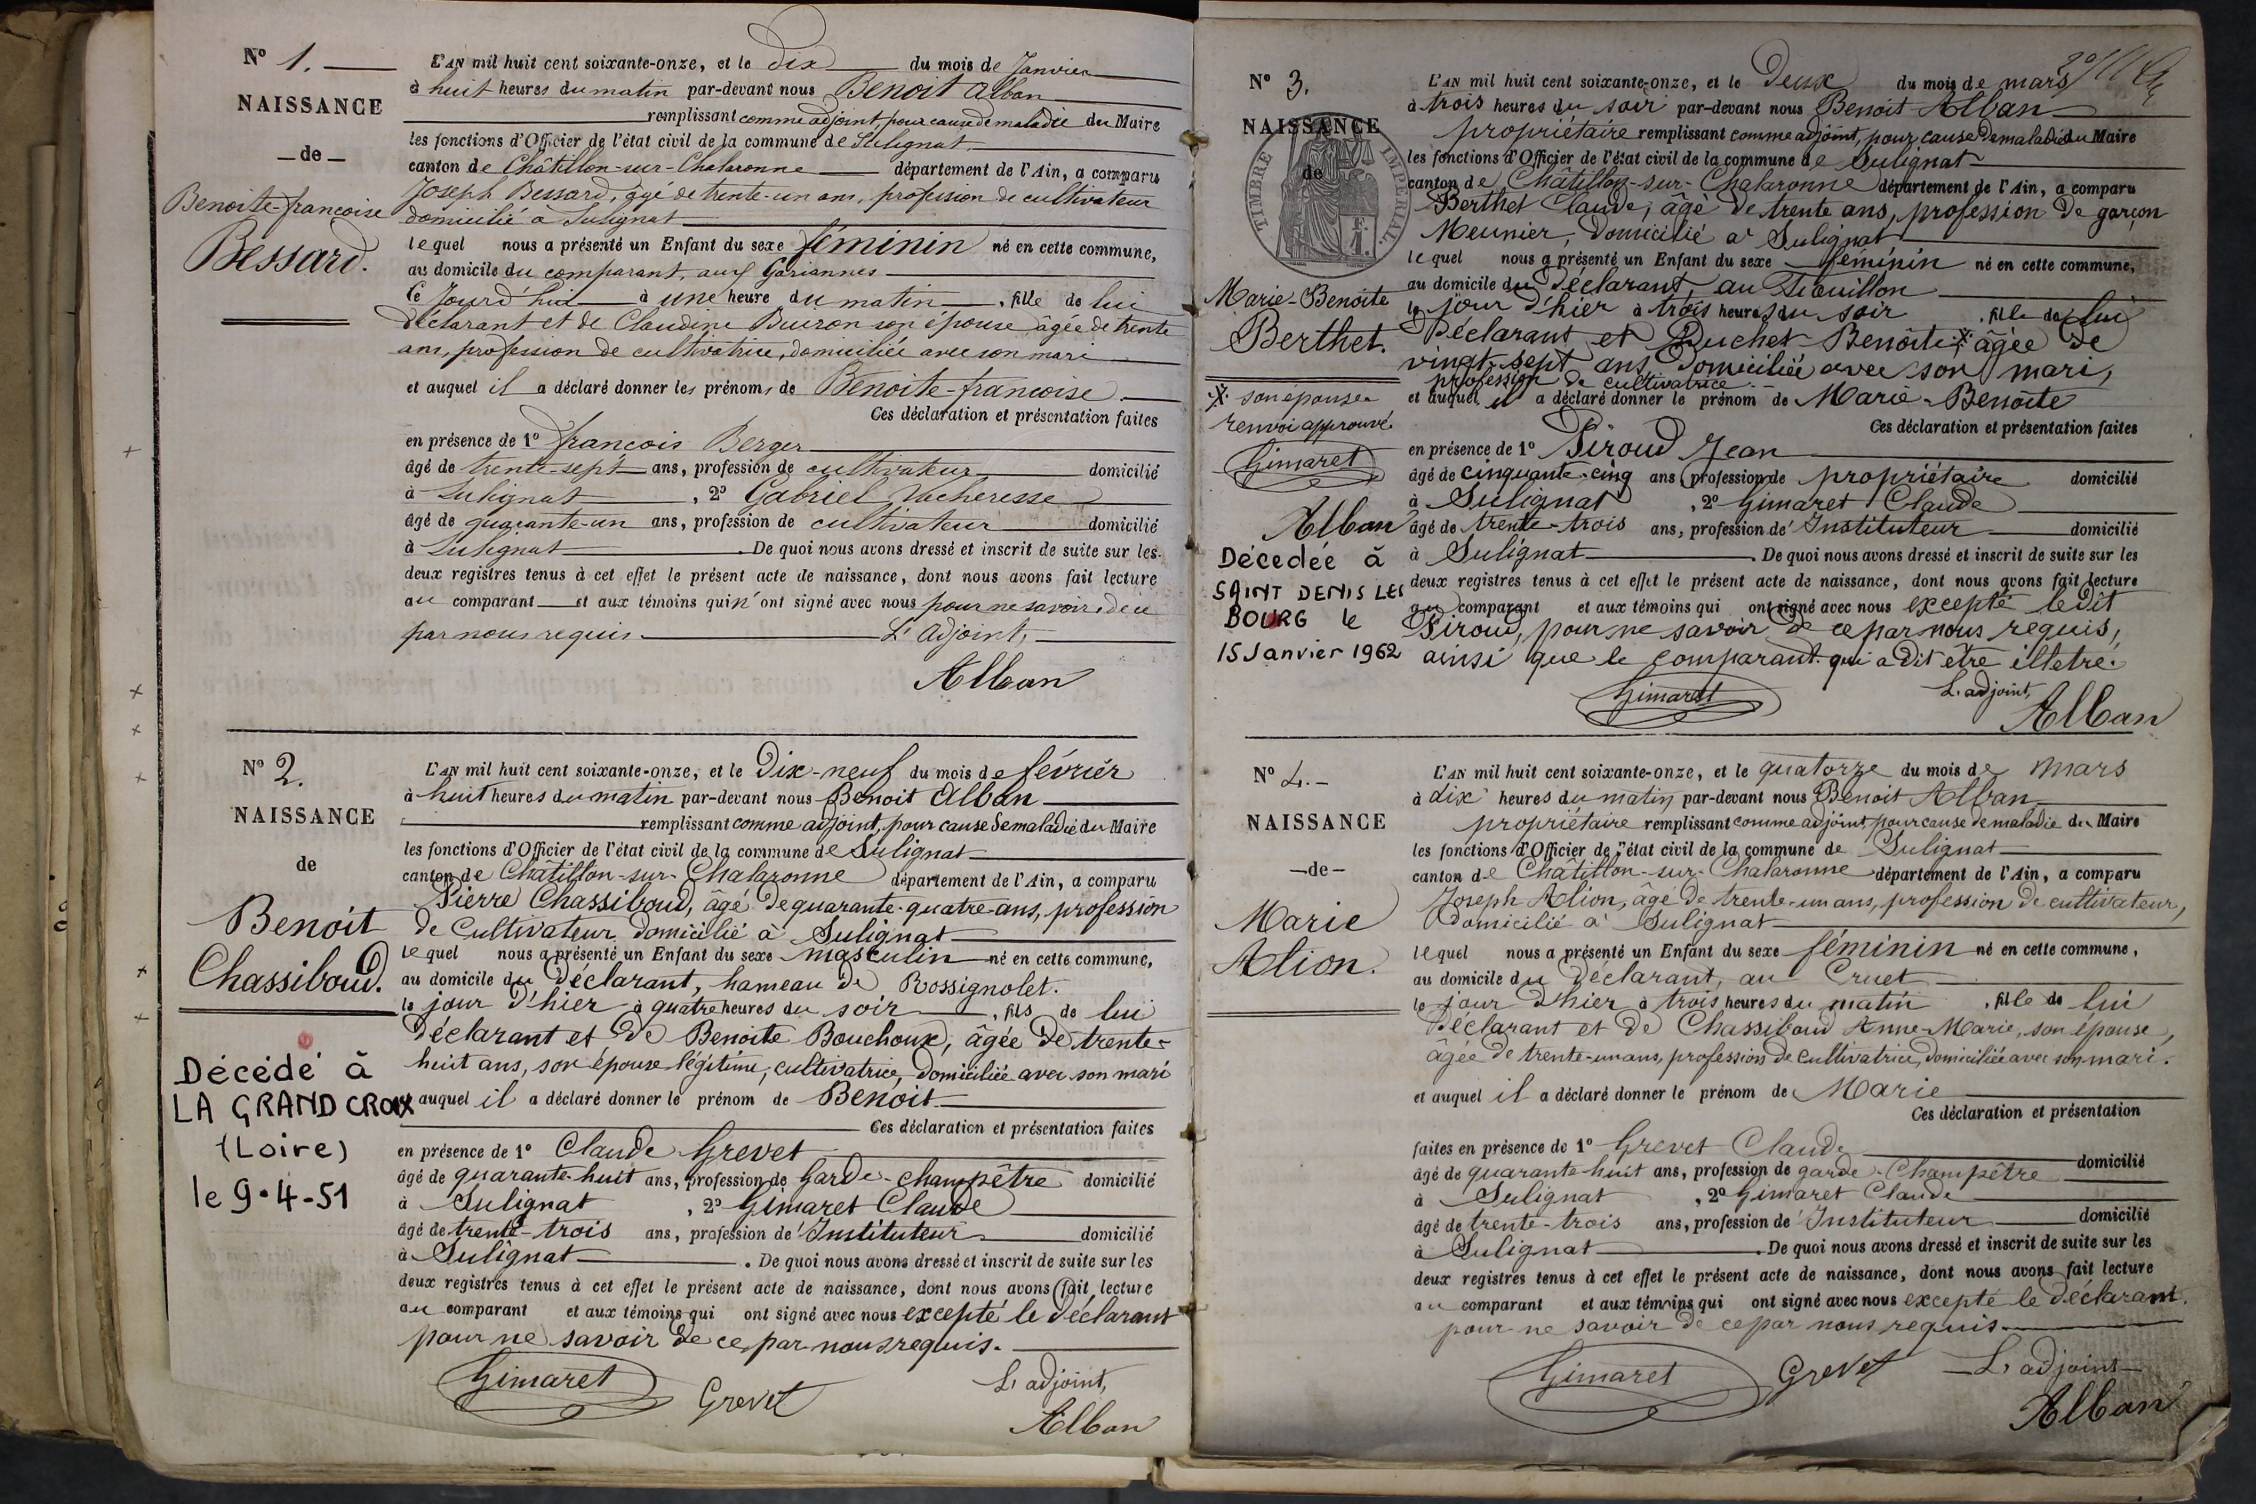 Nº 1.
NAISSANCE
de
Benoite-francoise
Bessard.
L'AN mil huit cent soixante-onze, et le dix du mois de Janvier
à huit heures du matin par-devant nous Benoit Alban
remplissant comme adjoint, pour cause de maladie du Maire
les fonctions d'Officier de l'état civil de la commune de Sulignat
canton de Châtillon-sur-Chalaronne département de l'Ain, a comparu
Joseph Bessard, âgé de trente-un ans, profession de cultivateur
domicilié à Sulignat
lequel nous a présenté un Enfant du sexe féminin né en cette commune,
au domicile du comparant, aux Gariannes
ce jourd'hui à une heure du matin, fille de lui
déclarant et de Claudine Buiron son épouse âgée de trente
ans, profession de cultivatrice, domiciliée avec son mari
et auquel il a déclaré donner les prénoms de Benoite-francoise
Ces déclaration et présentation faites
en présence de 1º françois Berger
âgé de trente-sept ans, profession de cultivateur domicilié
à Sulignat, 2º Gabriel Vacheresse
âgé de quarante-un ans, profession de cultivateur domicilié
à Sulignat. De quoi nous avons dressé et inscrit de suite sur les
deux registres tenus à cet effet le présent acte de naissance, dont nous avons fait lecture
au comparant et aux témoins qui n'ont signé avec nous pour ne savoir, de ce
par nous requis. L'adjoint,
Alban
Nº 2.
NAISSANCE
de
Benoit
Chassiboud.
Décédé à
LA GRAND CROIX
(Loire)
le 9-4-51
L'AN mil huit cent soixante-onze, et le Dix-neuf du mois de février
à huit heures du matin par-devant nous Benoit Alban
remplissant comme adjoint, pour cause de maladie du Maire
les fonctions d'Officier de l'état civil de la commune de Sulignat
canton de Châtillon-sur-Chalaronne département de l'Ain, a comparu
Pierre Chassiboud, âgé de quarante-quatre-ans, profession
de cultivateur domicilié à Sulignat
lequel nous a présenté un Enfant du sexe masculin né en cette commune,
au domicile du Déclarant, hameau de Rossignolet.
le jour d'hier à quatre heures du soir, fils de lui
Déclarant et de Benoite Bouchoux, âgée de trente-
huit ans, son épouse légitime, cultivatrice, domiciliée avec son mari
et auquel il a déclaré donner le prénom de Benoit
Ces déclaration et présentation faites
en présence de 1º Claude Grevet
âgé de quarante-huit ans, profession de Garde-champêtre domicilié
à Sulignat, 2º Gimaret Claude
âgé de trente-trois ans, profession d'Instituteur domicilié
à Sulignat. De quoi nous avons dressé et inscrit de suite sur les
deux registres tenus à cet effet le présent acte de naissance, dont nous avons fait lecture
au comparant et aux témoins qui ont signé avec nous excepté le Déclarant
pour ne savoir de ce par nous requis.
Gimaret Grevet L'adjoint,
Alban
Nº 3.
NAISSANCE
de
TIMBRE IMPERIAL.
Marie-Benoite
Berthet.
X son épouse
renvoi approuvé
Gimaret
Alban
Décedée à
SAINT DENIS LES
BOURG le
15 Janvier 1962
L'AN mil huit cent soixante-onze, et le Deux du mois de mars
à trois heures du soir par-devant nous Benoit Alban
propriétaire remplissant comme adjoint, pour cause de maladie du Maire
les fonctions d'Officier de l'état civil de la commune de Sulignat
canton de Châtillon-sur-Chalaronne département de l'Ain, a comparu
Berthet Claude, âgé de trente ans, profession de garçon
Meunier, domicilié à Sulignat
lequel nous a présenté un Enfant du sexe féminin né en cette commune,
au domicile du Déclarant, au Trouillon
le jour d'hier à trois heures du soir, fille de lui
Déclarant et Duchet Benoîte X âgée de
vingt-sept ans, Domiciliée avec son mari,
profession de cultivatrice
et auquel il a déclaré donner le prénom de Marie-Benoîte
Ces déclaration et présentation faites
en présence de 1º Piroud Jean
âgé de cinquante-cinq ans profession de propriétaire domicilié
à Sulignat, 2º Gimaret Claude
âgé de trente-trois ans, profession d'Instituteur domicilié
à Sulignat. De quoi nous avons dressé et inscrit de suite sur les
deux registres tenus à cet effet le présent acte de naissance, dont nous avons fait lecture
au comparant et aux témoins qui ont signé avec nous excepté ledit
Piroud, pour ne savoir de ce par nous requis,
ainsi que le comparant qui a dit être illetré.
Gimaret L'adjoint,
Alban
Nº 4.
NAISSANCE
de
Marie
Alion.
L'AN mil huit cent soixante-onze, et le quatorze du mois de mars
à dix heures du matin par-devant nous Benoit Alban
propriétaire remplissant comme adjoint, pour cause de maladie du Maire
les fonctions d'Officier de l'état civil de la commune de Sulignat
canton de Châtillon-sur-Chalaronne département de l'Ain, a comparu
Joseph Alion, âgé de trente-un ans, profession de cultivateur,
Domicilié à Sulignat
lequel nous a présenté un Enfant du sexe féminin né en cette commune,
au domicile du Déclarant, au Cruet
le jour d'hier à trois heures du matin, fille de lui
Déclarant et de Chassiboud Anne-Marie, son épouse,
âgée de trente-un ans, profession de cultivatrice, domiciliée avec son mari.
et auquel il a déclaré donner le prénom de Marie
Ces déclaration et présentation
faites en présence de 1º Grevet Claude
âgé de quarante-huit ans, profession de garde-Champêtre domicilié
à Sulignat, 2º Gimaret Claude
âgé de trente-trois ans, profession d'Instituteur domicilié
à Sulignat. De quoi nous avons dressé et inscrit de suite sur les
deux registres tenus à cet effet le présent acte de naissance, dont nous avons fait lecture
au comparant et aux témoins qui ont signé avec nous excepté le Déclarant.
pour ne savoir de ce par nous requis.
Gimaret Grevet L'adjoint
Alban